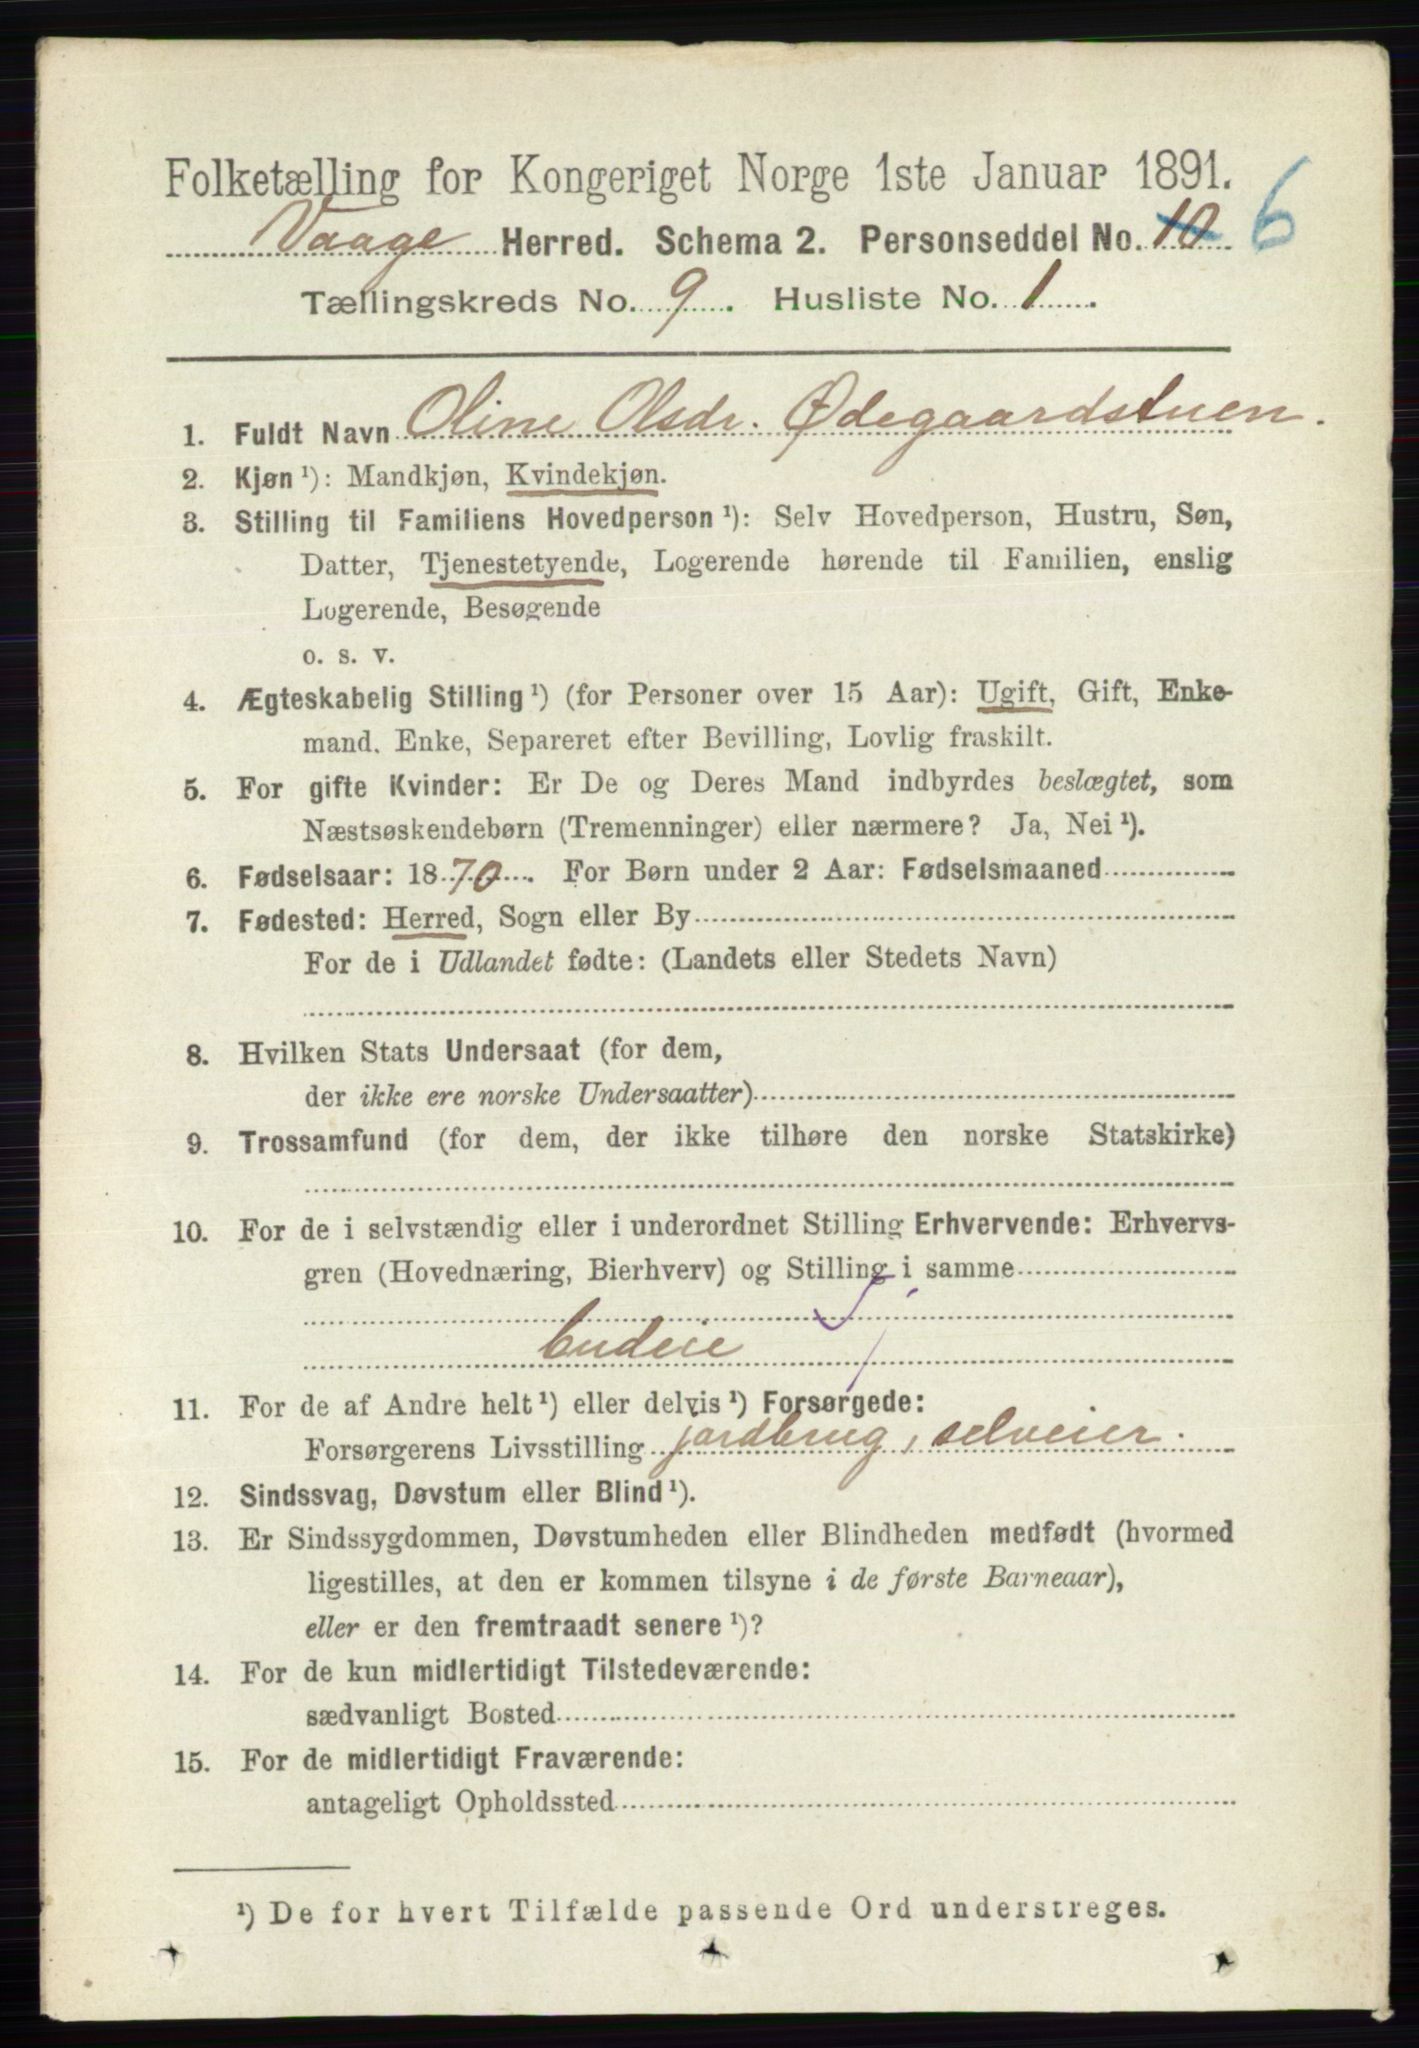 Folketælling for Kongeriget Norge 1ste Januar 1891.
Vaage Herred. Schema 2. Personseddel No. 10 6
Tællingskreds No. 9. Husliste No. 1.
1. Fuldt Navn Oline Olsdr. Ødegaardstuen.
2. Kjøn ¹): Mandkjøn, Kvindekjøn.
3. Stilling til Familiens Hovedperson ¹): Selv Hovedperson, Hustru, Søn,
Datter, Tjenestetyende, Logerende hørende til Familien, enslig
Logerende, Besøgende
o. s. v.
4. Ægteskabelig Stilling ¹) (for Personer over 15 Aar): Ugift, Gift, Enke-
mand, Enke, Separeret efter Bevilling, Lovlig fraskilt.
5. For gifte Kvinder: Er De og Deres Mand indbyrdes beslægtet, som
Næstsøskendebørn (Tremenninger) eller nærmere? Ja, Nei ¹).
6. Fødselsaar: 1870. For Børn under 2 Aar: Fødselsmaaned
7. Fødested: Herred, Sogn eller By
For de i Udlandet fødte: (Landets eller Stedets Navn)
8. Hvilken Stats Undersaat (for dem,
der ikke ere norske Undersaatter)
9. Trossamfund (for dem, der ikke tilhøre den norske Statskirke)
10. For de i selvstændig eller i underordnet Stilling Erhvervende: Erhvervs-
gren (Hovednæring, Bierhverv) og Stilling i samme
budeie
11. For de af Andre helt ¹) eller delvis ¹) Forsørgede:
Forsørgerens Livsstilling jordbrug, selveier.
12. Sindssvag, Døvstum eller Blind ¹).
13. Er Sindssygdommen, Døvstumheden eller Blindheden medfødt (hvormed
ligestilles, at den er kommen tilsyne i de første Barneaar),
eller er den fremtraadt senere ¹)?
14. For de kun midlertidigt Tilstedeværende:
sædvanligt Bosted
15. For de midlertidigt Fraværende:
antageligt Opholdssted
¹) De for hvert Tilfælde passende Ord understreges.